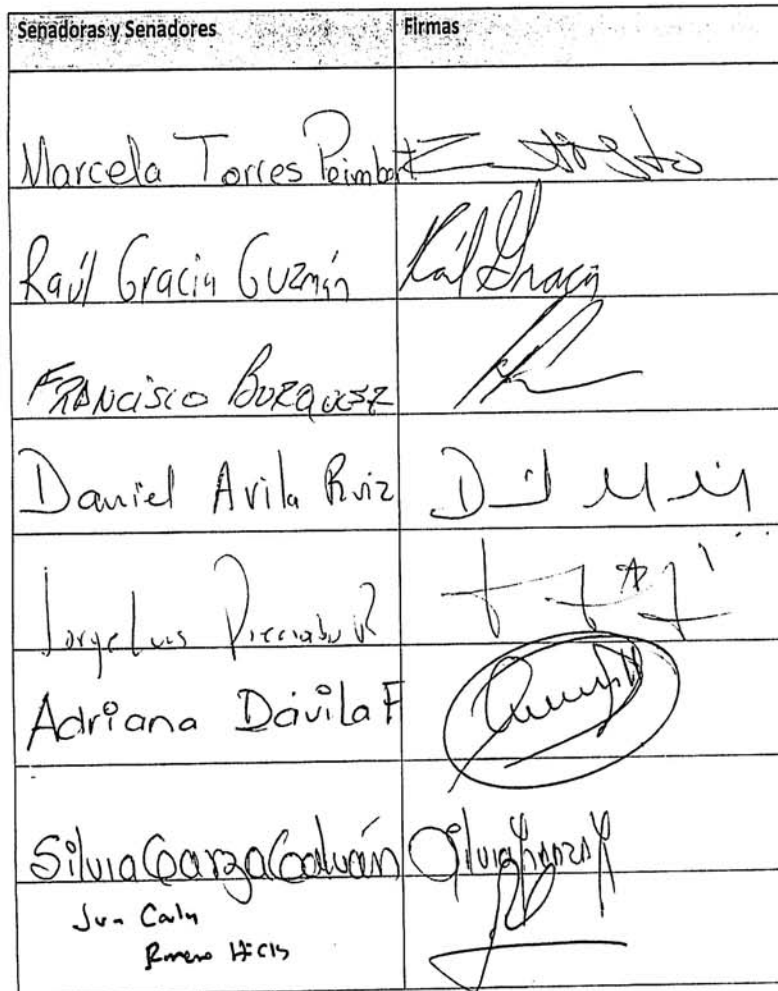 Senadoras y Senadores Firmas
Marcela Torres Peimbert
Raúl Gracia Guzmán Raúl Gracia
FRANCISCO BURQUEZ
Daniel Avila Ruiz
Jorge Luis Preciado R
Adriana Dávila F
Silvia Garza Galván Silvia Garza G
Juan Carlos
Romero Hicks